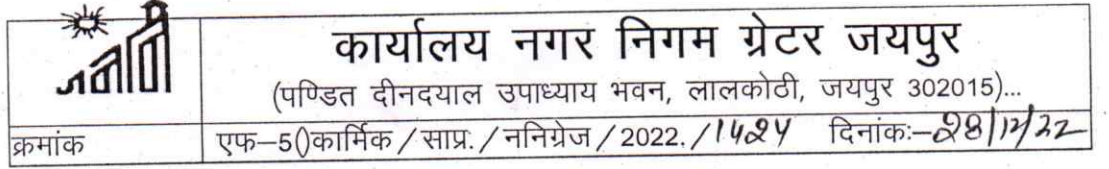 कार्यालय नगर निगम ग्रेटर जयपुर
(पण्डित दीनदयाल उपाध्याय भवन, लालकोठी, जयपुर 302015)...
क्रमांक एफ–5()कार्मिक / साप्र. / ननिग्रेज / 2022. / दिनांकः–28/12/22